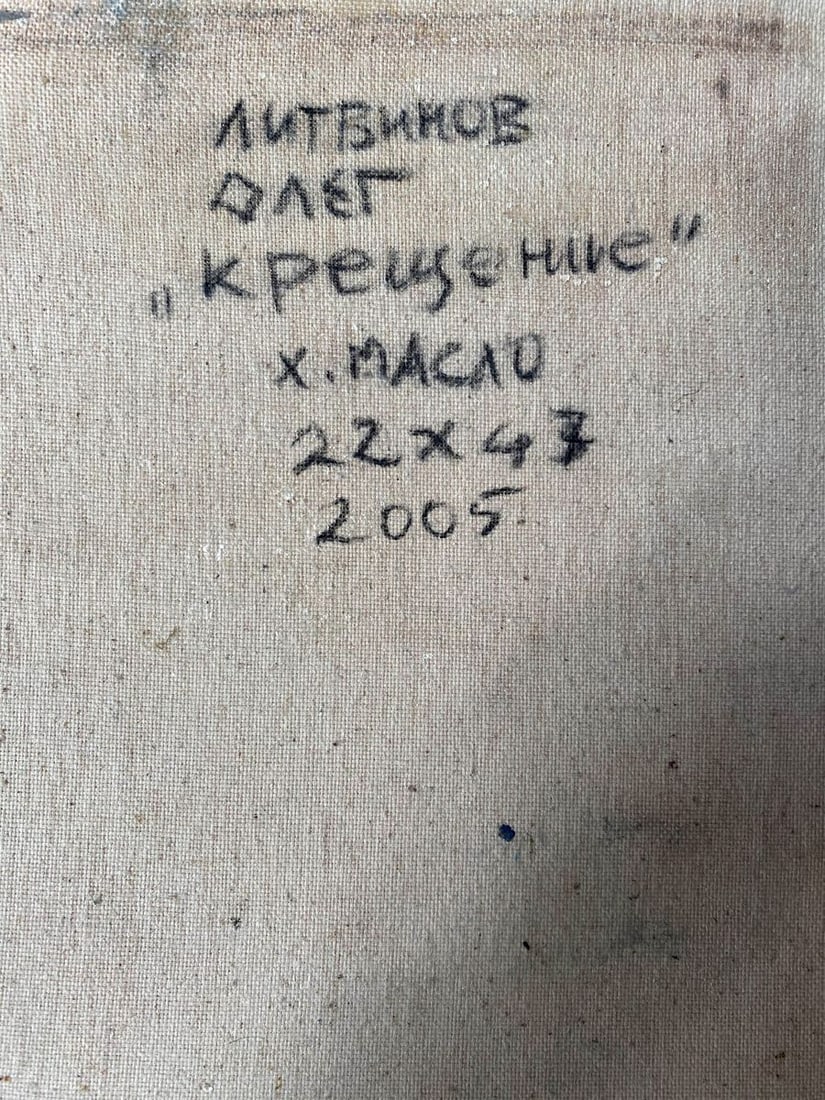 ЛИТВИНОВ
ОЛЕГ
„Крещение"
х. МАСЛО
22 х 47
2005.